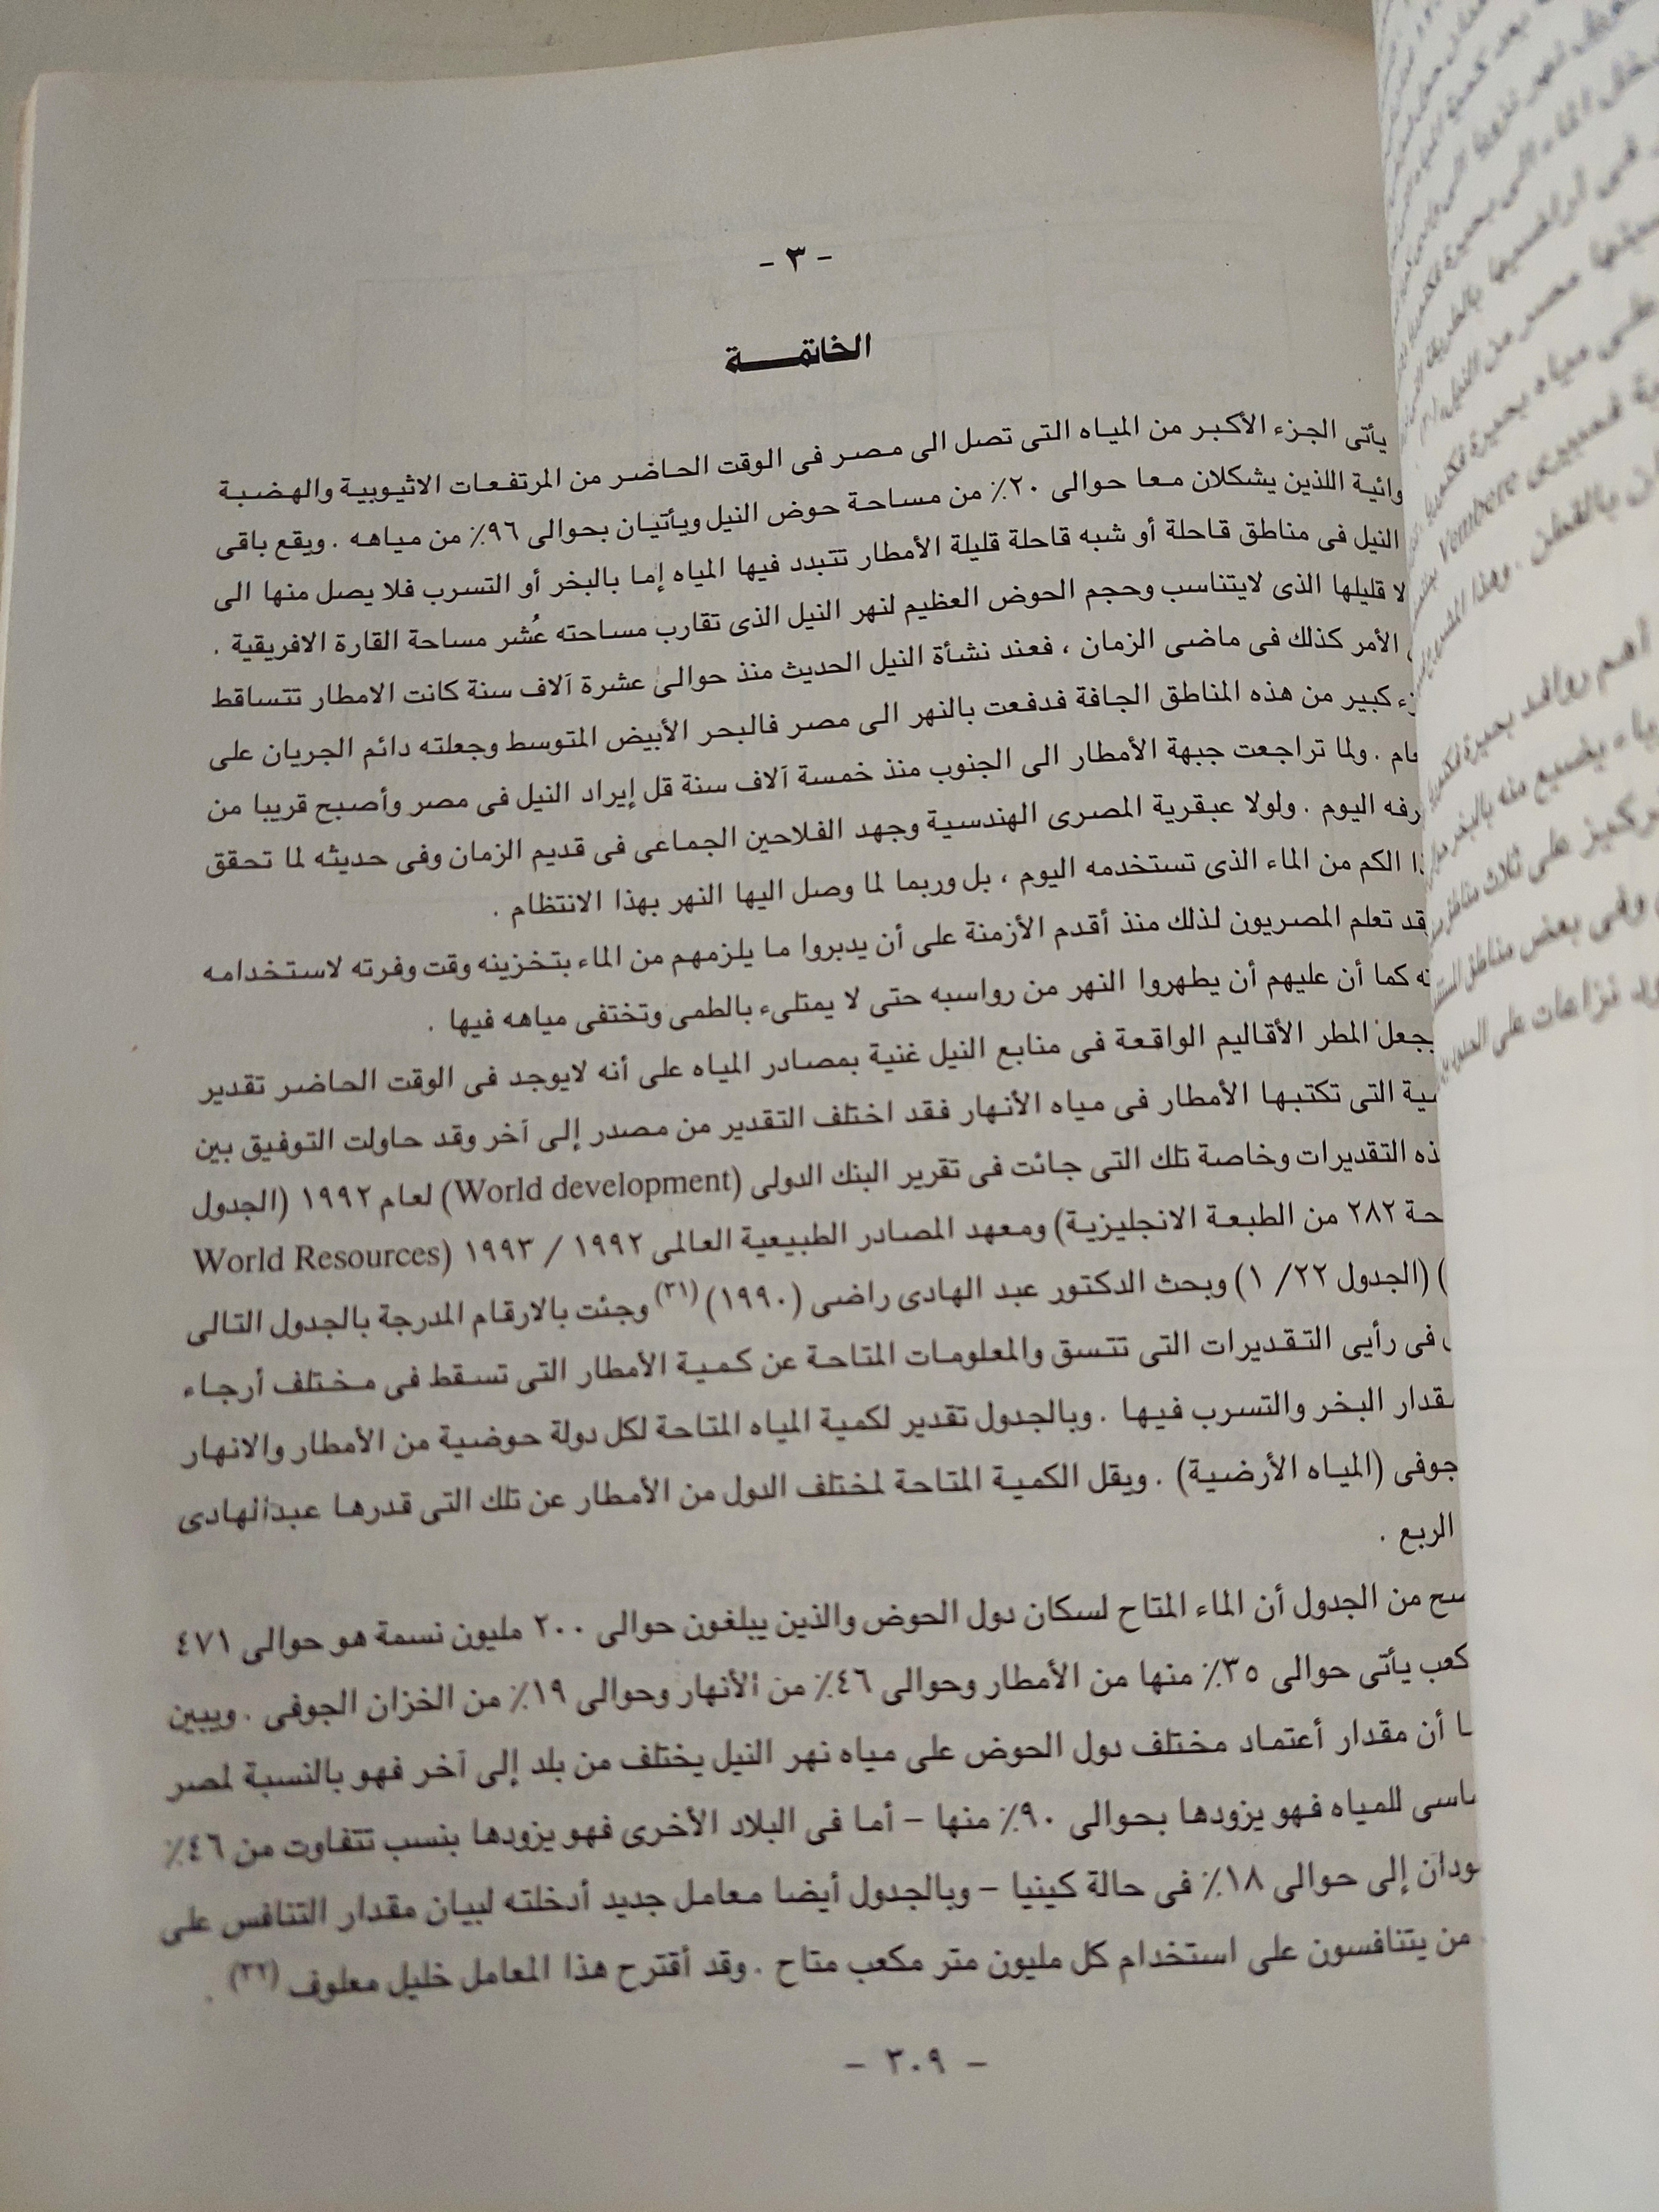 - ٣ -
الخاتمـــــة
يأتى الجزء الأكبر من المياه التى تصل الى مصر فى الوقت الحاضر من المرتفعات الاثيوبية والهضبة
وائية اللذين يشكلان معا حوالى ٢٠٪ من مساحة حوض النيل ويأتيان بحوالى ٩٦٪ من مياهه . ويقع باقى
النيل فى مناطق قاحلة أو شبه قاحلة قليلة الأمطار تتبدد فيها المياه إما بالبخر أو التسرب فلا يصل منها الى
لا قليلها الذى لايتناسب وحجم الحوض العظيم لنهر النيل الذى تقارب مساحته عُشر مساحة القارة الافريقية .
الأمر كذلك فى ماضى الزمان ، فعند نشأة النيل الحديث منذ حوالى عشرة آلاف سنة كانت الامطار تتساقط
زء كبير من هذه المناطق الجافة فدفعت بالنهر الى مصر فالبحر الأبيض المتوسط وجعلته دائم الجريان على
عام . ولما تراجعت جبهة الأمطار الى الجنوب منذ خمسة آلاف سنة قل إيراد النيل فى مصر وأصبح قريبا من
رفه اليوم . ولولا عبقرية المصرى الهندسية وجهد الفلاحين الجماعى فى قديم الزمان وفى حديثه لما تحقق
ذا الكم من الماء الذى تستخدمه اليوم ، بل وربما لما وصل اليها النهر بهذا الانتظام .
قد تعلم المصريون لذلك منذ أقدم الأزمنة على أن يدبروا ما يلزمهم من الماء بتخزينه وقت وفرته لاستخدامه
ته كما أن عليهم أن يطهروا النهر من رواسبه حتى لا يمتلىء بالطمى وتختفى مياهه فيها .
يجعل المطر الأقاليم الواقعة فى منابع النيل غنية بمصادر المياه على أنه لايوجد فى الوقت الحاضر تقدير
مية التى تكتبها الأمطار فى مياه الأنهار فقد اختلف التقدير من مصدر إلى آخر وقد حاولت التوفيق بين
ذه التقديرات وخاصة تلك التى جائت فى تقرير البنك الدولى (World development) لعام ١٩٩٢ (الجدول
حة ٢٨٢ من الطبعة الانجليزية) ومعهد المصادر الطبيعية العالمى ١٩٩٢ / ١٩٩٣ (World Resources
) (الجدول ٢٢/ ١) وبحث الدكتور عبد الهادى راضى (١٩٩٠)(٣١) وجئت بالارقام المدرجة بالجدول التالى
فى رأيى التقديرات التى تتسق والمعلومات المتاحة عن كمية الأمطار التى تسقط فى مختلف أرجاء
مقدار البخر والتسرب فيها . وبالجدول تقدير لكمية المياه المتاحة لكل دولة حوضية من الأمطار والانهار
جوفى (المياه الأرضية) . ويقل الكمية المتاحة لمختلف الدول من الأمطار عن تلك التى قدرها عبدالهادى
الربع .
ضح من الجدول أن الماء المتاح لسكان دول الحوض والذين يبلغون حوالى ٢٠٠ مليون نسمة هو حوالى ٤٧١
كعب يأتى حوالى ٣٥٪ منها من الأمطار وحوالى ٤٦٪ من الأنهار وحوالى ١٩٪ من الخزان الجوفى . ويبين
ـا أن مقدار أعتماد مختلف دول الحوض على مياه نهر النيل يختلف من بلد إلى آخر فهو بالنسبة لمصر
ساسى للمياه فهو يزودها بحوالى ٩٠٪ منها – أما فى البلاد الأخرى فهو يزودها بنسب تتفاوت من ٤٦٪
ودان إلى حوالى ١٨٪ فى حالة كينيا – وبالجدول أيضا معامل جديد أدخلته لبيان مقدار التنافس على
من يتنافسون على استخدام كل مليون متر مكعب متاح . وقد أقترح هذا المعامل خليل معلوف (٣٢) .
– ٣٠٩ –